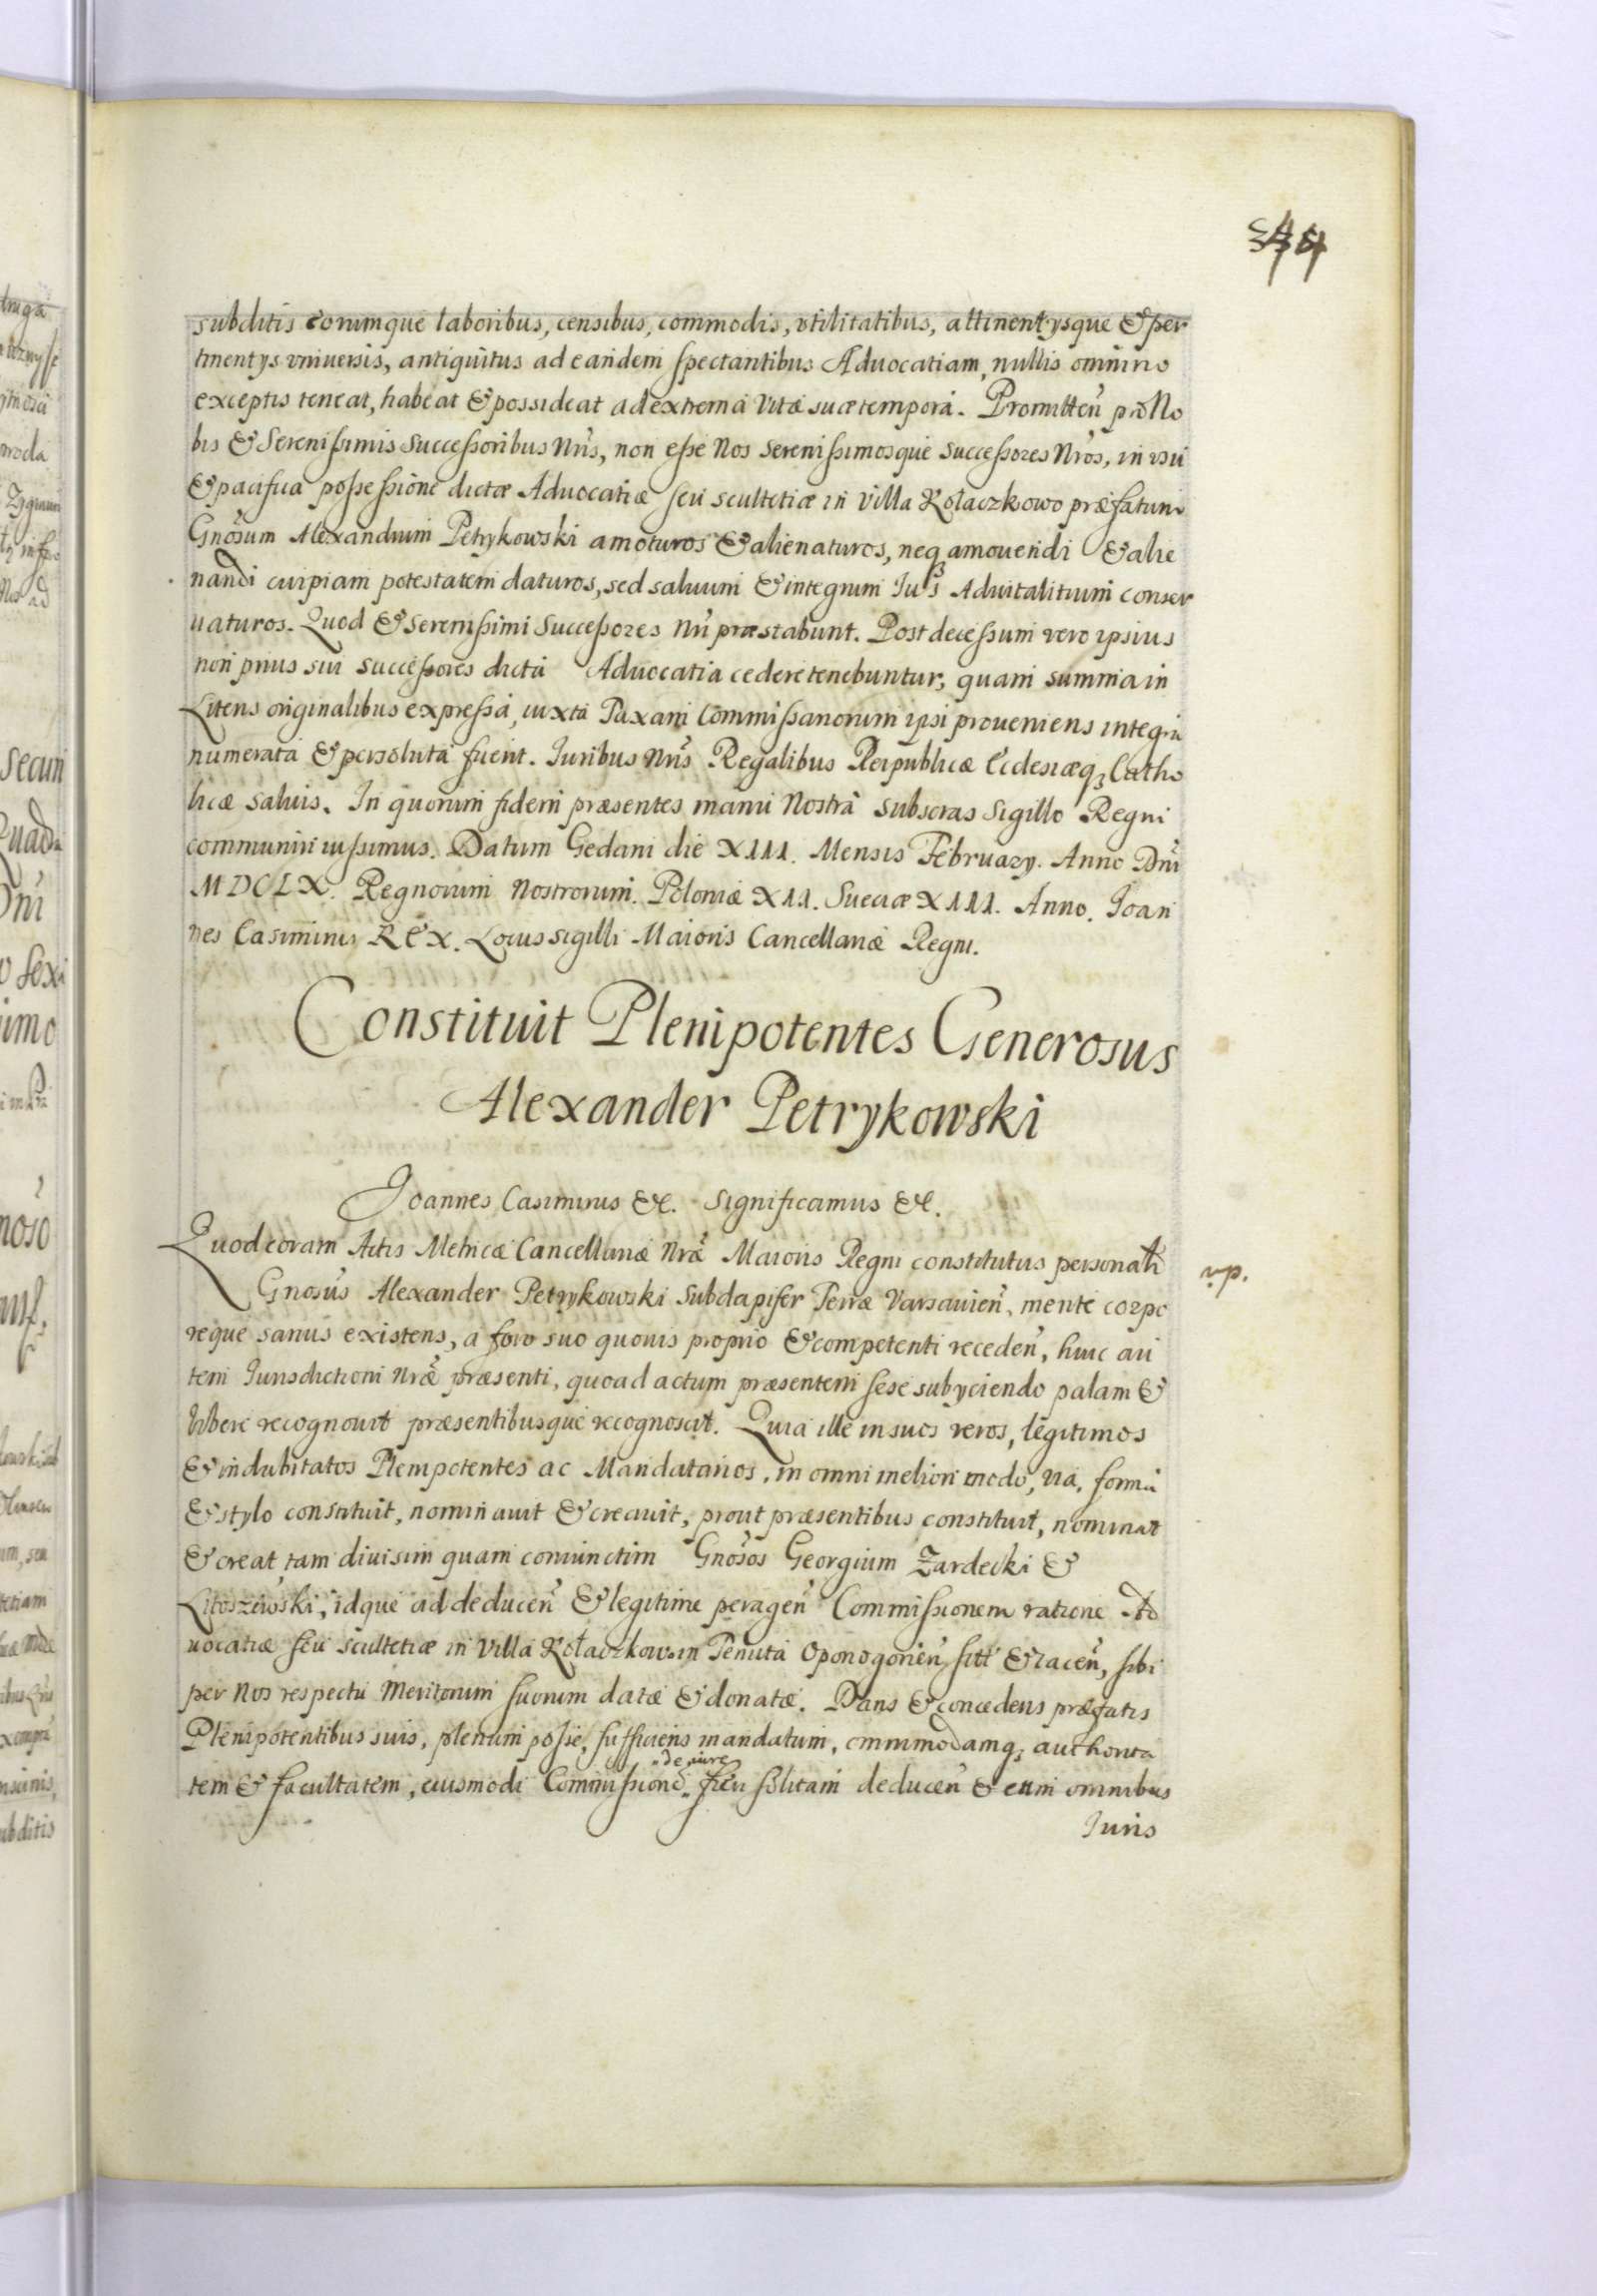 subditis eorumque laboribus, censibus, commodis, vtilitatibus, attinentysque & per
tinentys vniuersis, antiquitus ad eandem spectantibus Aduocatiam, nullis omnino
exceptis teneat, habeat & possideat ad extrema vitæ suæ tempora. Promitteñ pro No
bis & Serenissimis Successoribus Nris, non esse Nos Serenissimosque Successores Nros, in vsu
& pacifica possessione dictæ Aduocatiæ seu scultetiæ in Villa Kołaczkowo præfatum
Gnosum Alexandrum Petrykowski amoturos & alienaturos, neq amouendi & alie
nandi cuipiam potestatem daturos, sed saluum & integrum Ius Aduitalitium conser
uaturos. Quod & Serenissimi Successores Nri præstabunt. Post decessum vero ipsius
non prius sui successores dicta Aduocatia cedere tenebuntur, quam summa in
Literis originalibus expressa, iuxta Taxam Commissariorum ipsi proueniens integra
numerata & persoluta fuerit. Iuribus Nris Regalibus Reipublicæ Ecclesiæq Catho
licæ saluis. In quorum fidem præsentes manu Nostra subscras Sigillo Regni
communiri iussimus. Datum Gedani die XIII. Mensis February. Anno Dni
MDCLX. Regnorum Nostrorum. Poloniæ XII. Sueciæ XIII. Anno. Ioan
nes Casimirus REX. Locus sigilli Maioris Cancellariæ Regni.
Constituit Plenipotentes Generosus
Alexander Petrykowski
Ioannes Casimirus &c. Significamus &c.
Quod coram Actis Metricæ Cancellariæ Nræ Maioris Regni constitutus personalr
Gnosus Alexander Petrykowski Subdapifer Terræ Varsauieñ, mente corpo
reque sanus existens, a foro suo quouis proprio & competenti recedeñ, huic au
tem Iurisdictioni Nræ præsenti, quoad actum præsentem sese subyciendo palam &
libere recognouit præsentibusque recognoscit. Quia ille in suos veros, legitimos
& indubitatos Plenipotentes ac Mandatarios, in omni meliori modo, via, forma
& stylo constituit, nominauit & creauit, prout præsentibus constituit, nominat
& creat, tam diuisim quam coniunctim Gnosos Georgium Zardecki &
Litoszewski, idque ad deduceñ & legitime perageñ Commissionem ratione Ad
uocatiæ seu scultetiæ in Villa Kołaczkow in Tenuta Oponogorieñ sitæ & iaceñ, sibi
per Nos respectu Meritorum suorum datæ & donatæ. Dans & concedens præfatis
Plenipotentibus suis, plenum posse, sufficiens mandatum, omnimodamq, authorita
de iure
tem & facultatem, eiusmodi Commissione fieri solitam deduceñ & cum omnibus
Iuris